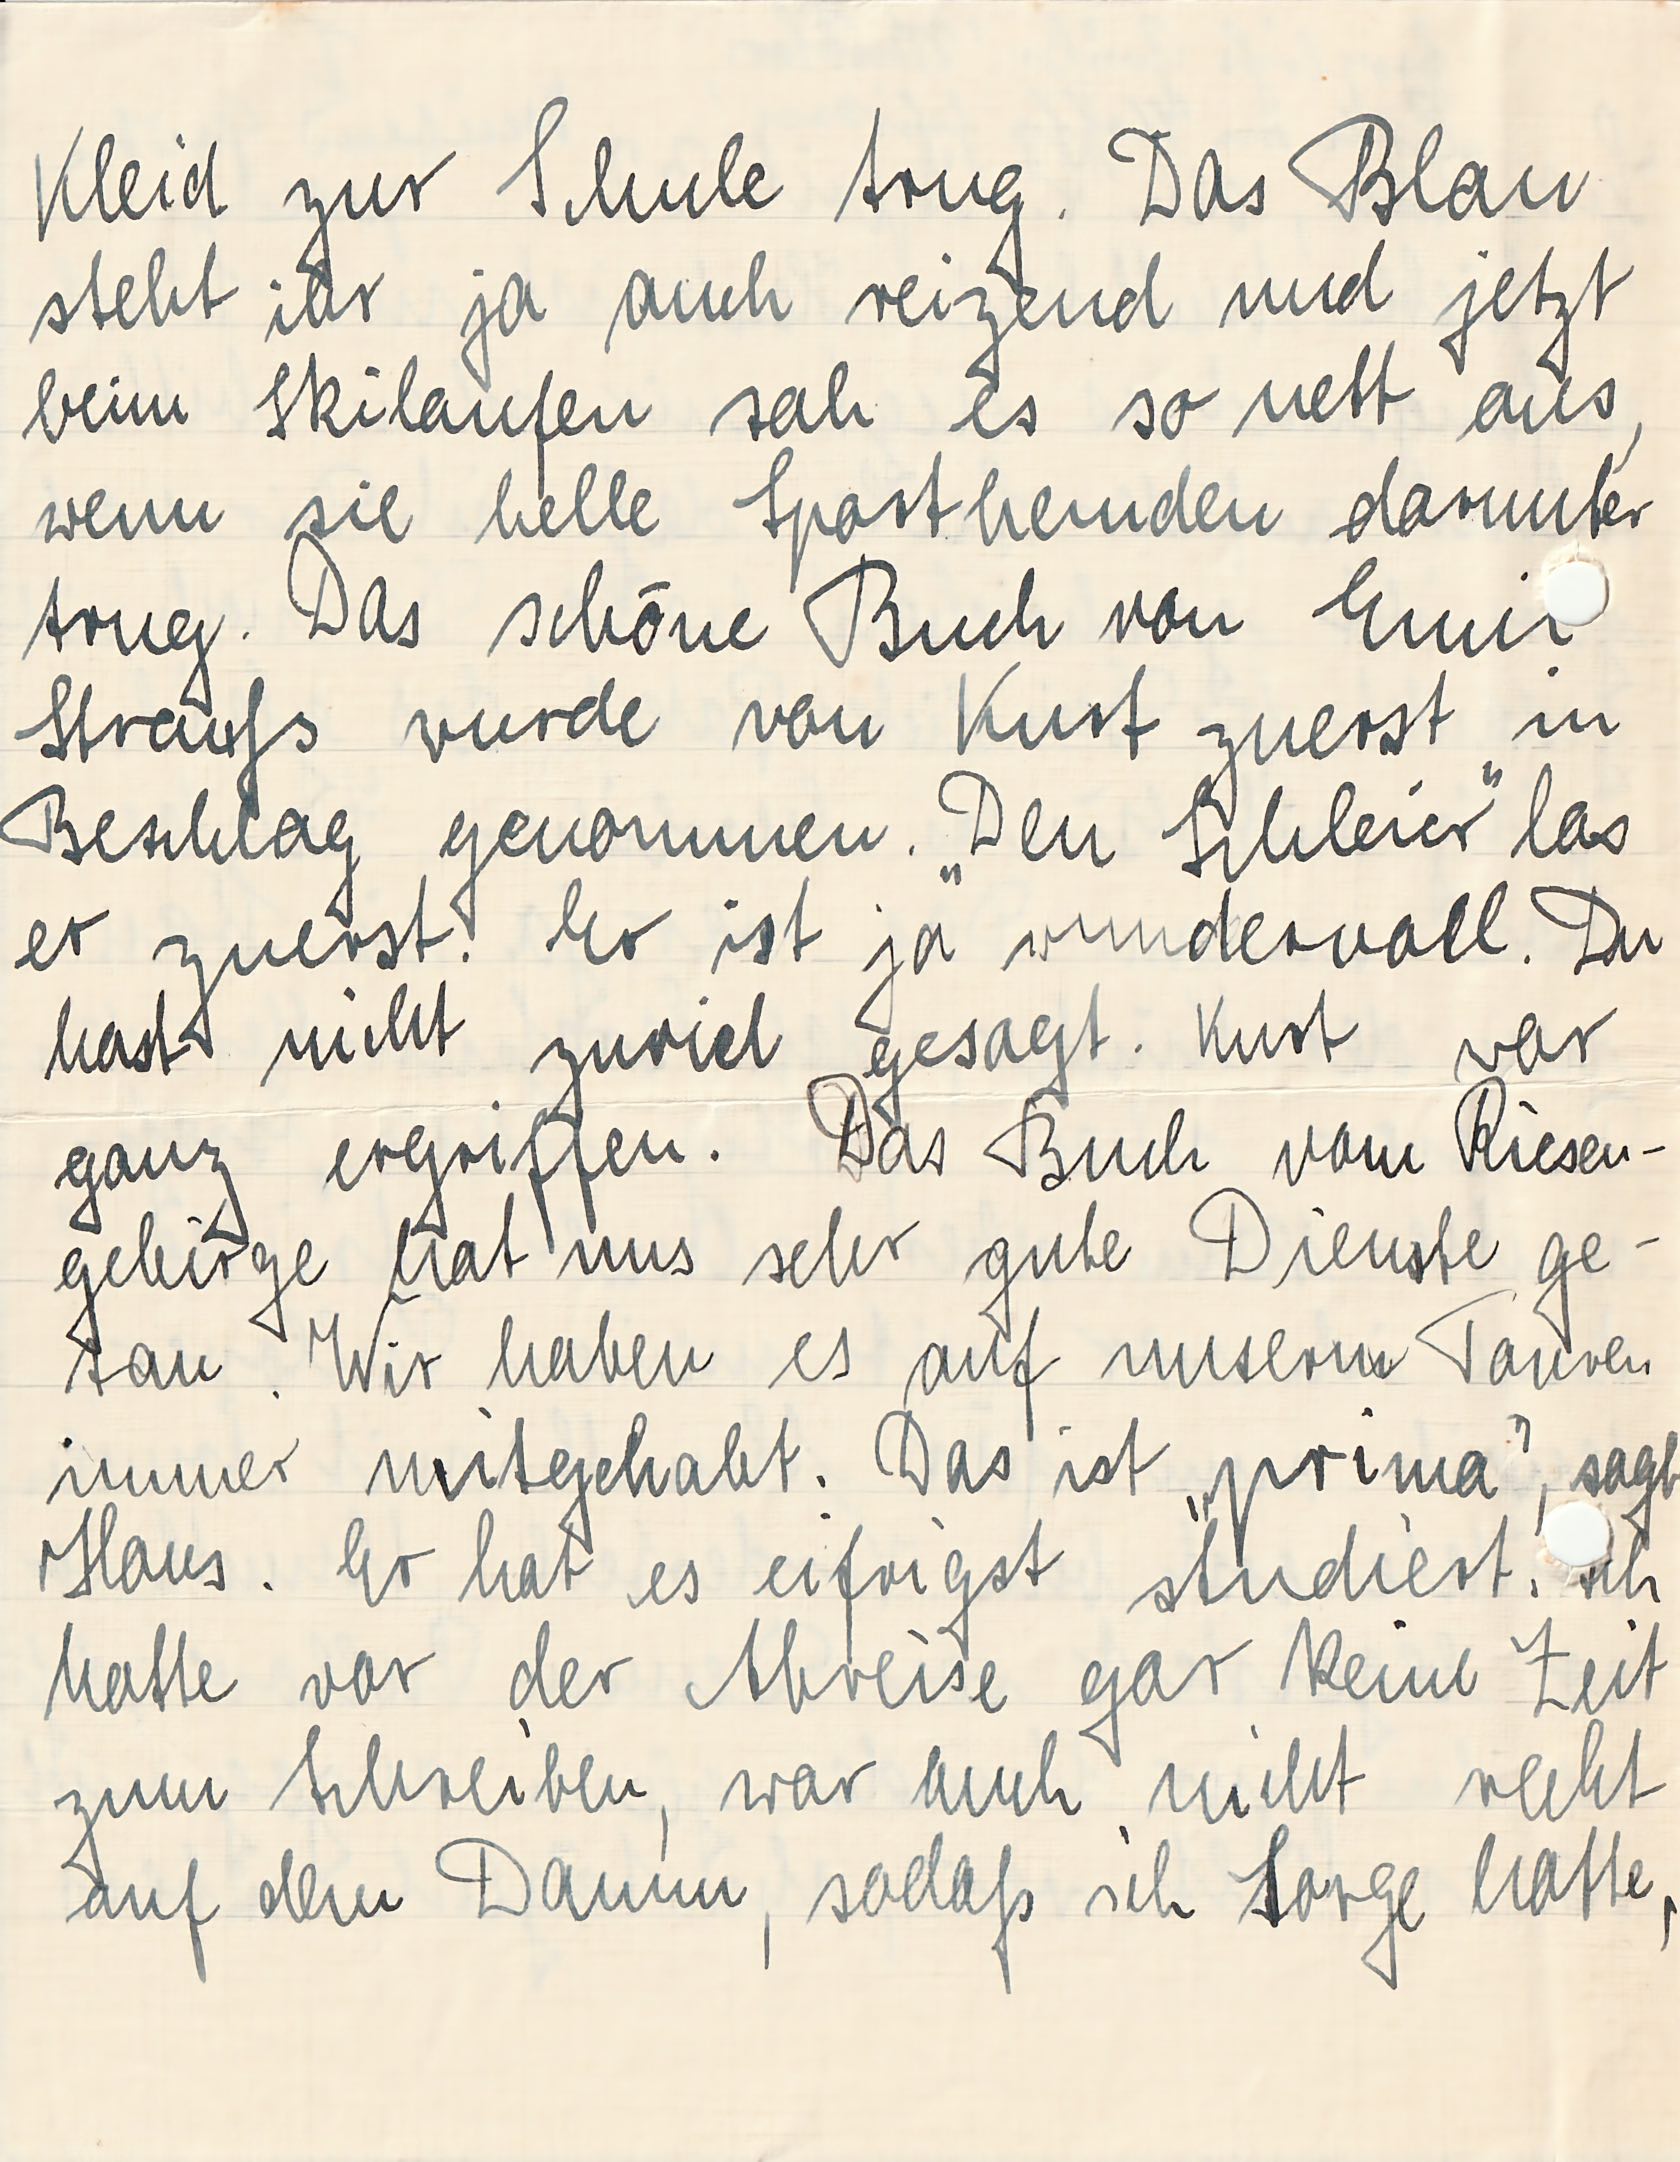 Kleid zur Schule trug. Das Blau
steht ihr ja auch reizend und jetzt
beim Skilaufen sah es so nett aus,
wenn sie helle Sporthemden darunter
trug. Das schöne Buch von Emil
Strauss wurde von Kurt zuerst in
Beschlag genommen. „Den Schleier" las
er zuerst. Er ist ja wundervoll. Du
hast nicht zuviel gesagt. Kurt war
ganz ergriffen. Das Buch vom Riesen-
gebirge hat uns sehr gute Dienste ge-
tan. Wir haben es auf unserm Touren
immer mitgehabt. Das ist „prima", sagt
Hans. Er hat es eifrigst studiert. Ich
hatte vor der Abreise gar keine Zeit
zum Schreiben, war auch nicht recht
auf dem Damm, sodaß ich Sorge hatte,